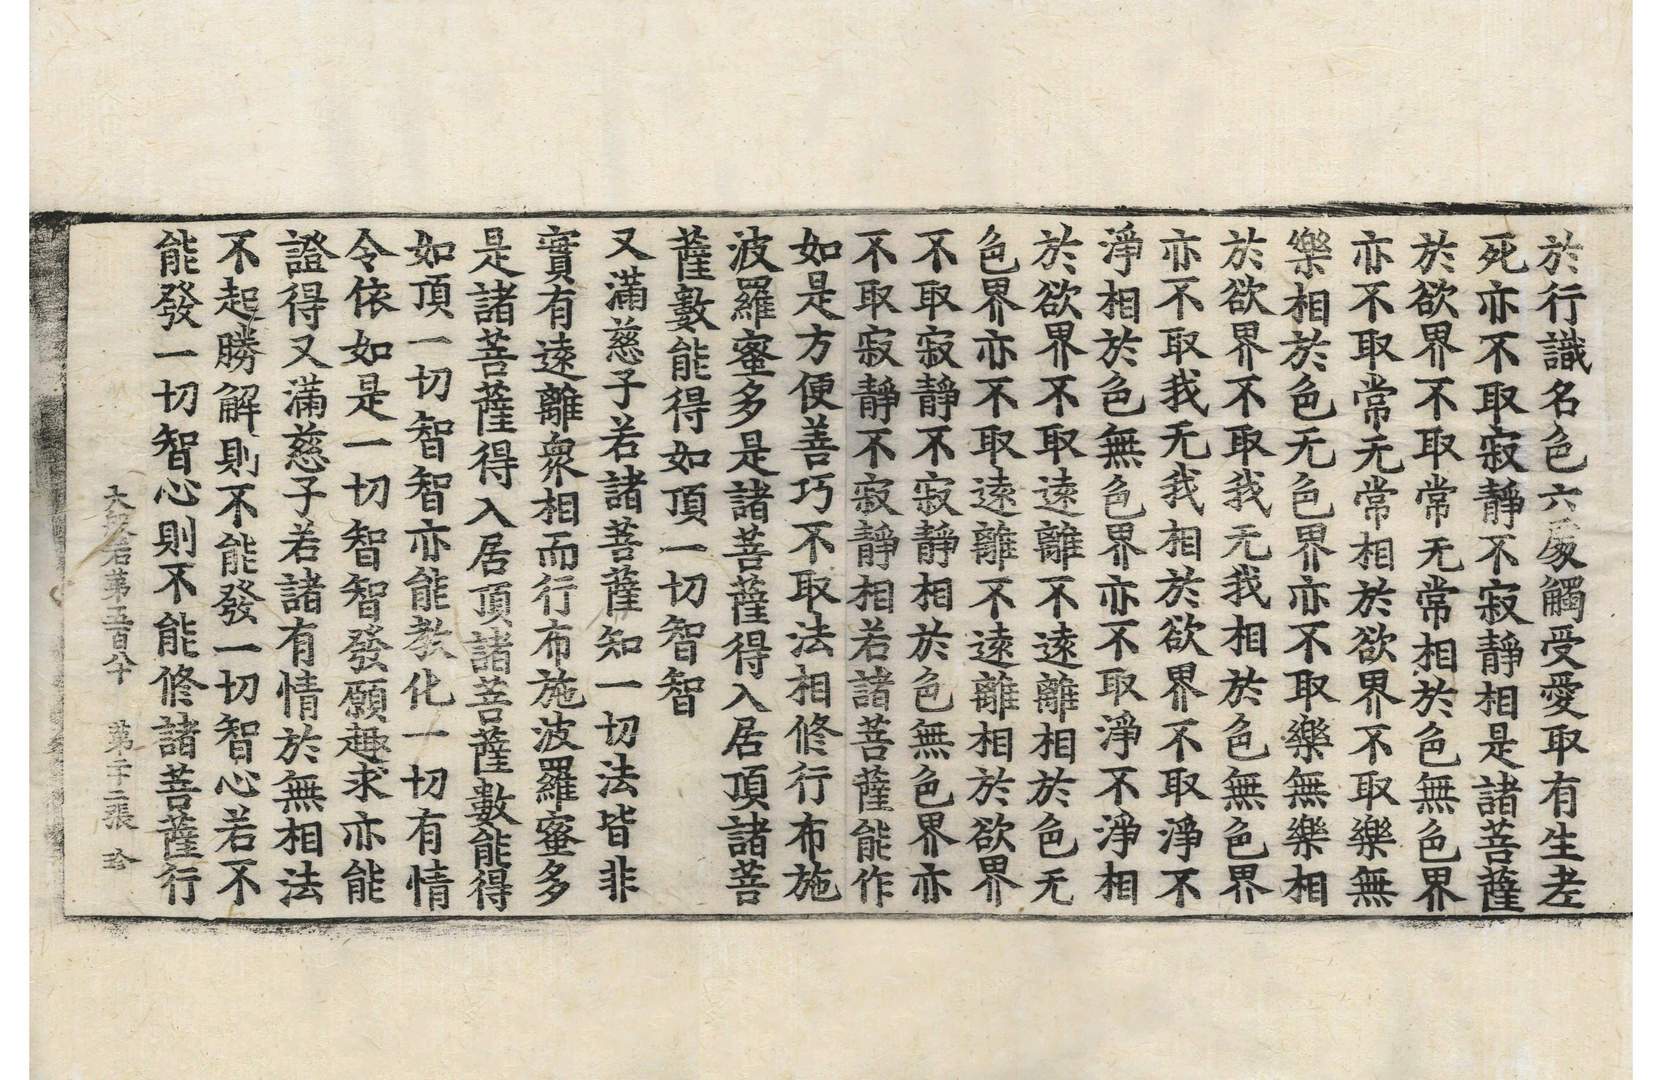 於行識名色六處觸受愛取有生老
死亦不取寂靜不寂靜相是諸菩薩
於欲界不取常无常相於色無色界
亦不取常无常相於欲界不取樂無
樂相於色无色界亦不取樂無樂相
於欲界不取我无我相於色無色界
亦不取我无我相於欲界不取淨不
淨相於色無色界亦不取淨不淨相
於欲界不取遠離不遠離相於色无
色界亦不取遠離不遠離相於欲界
不取寂靜不寂靜相於色無色界亦
不取寂靜不寂靜相若諸菩薩能作
如是方便善巧不取法相修行布施
波羅蜜多是諸菩薩得入居頂諸菩
薩數能得如頂一切智智
又滿慈子若諸菩薩知一切法皆非
實有遠離衆相而行布施波羅蜜多
是諸菩薩得入居頂諸菩薩數能得
如頂一切智智亦能教化一切有情
令依如是一切智智發願趣求亦能
證得又滿慈子若諸有情於無相法
不起勝解則不能發一切智心若不
能發一切智心則不能修諸菩薩行
大般若第五百八十 第二十二張 珍